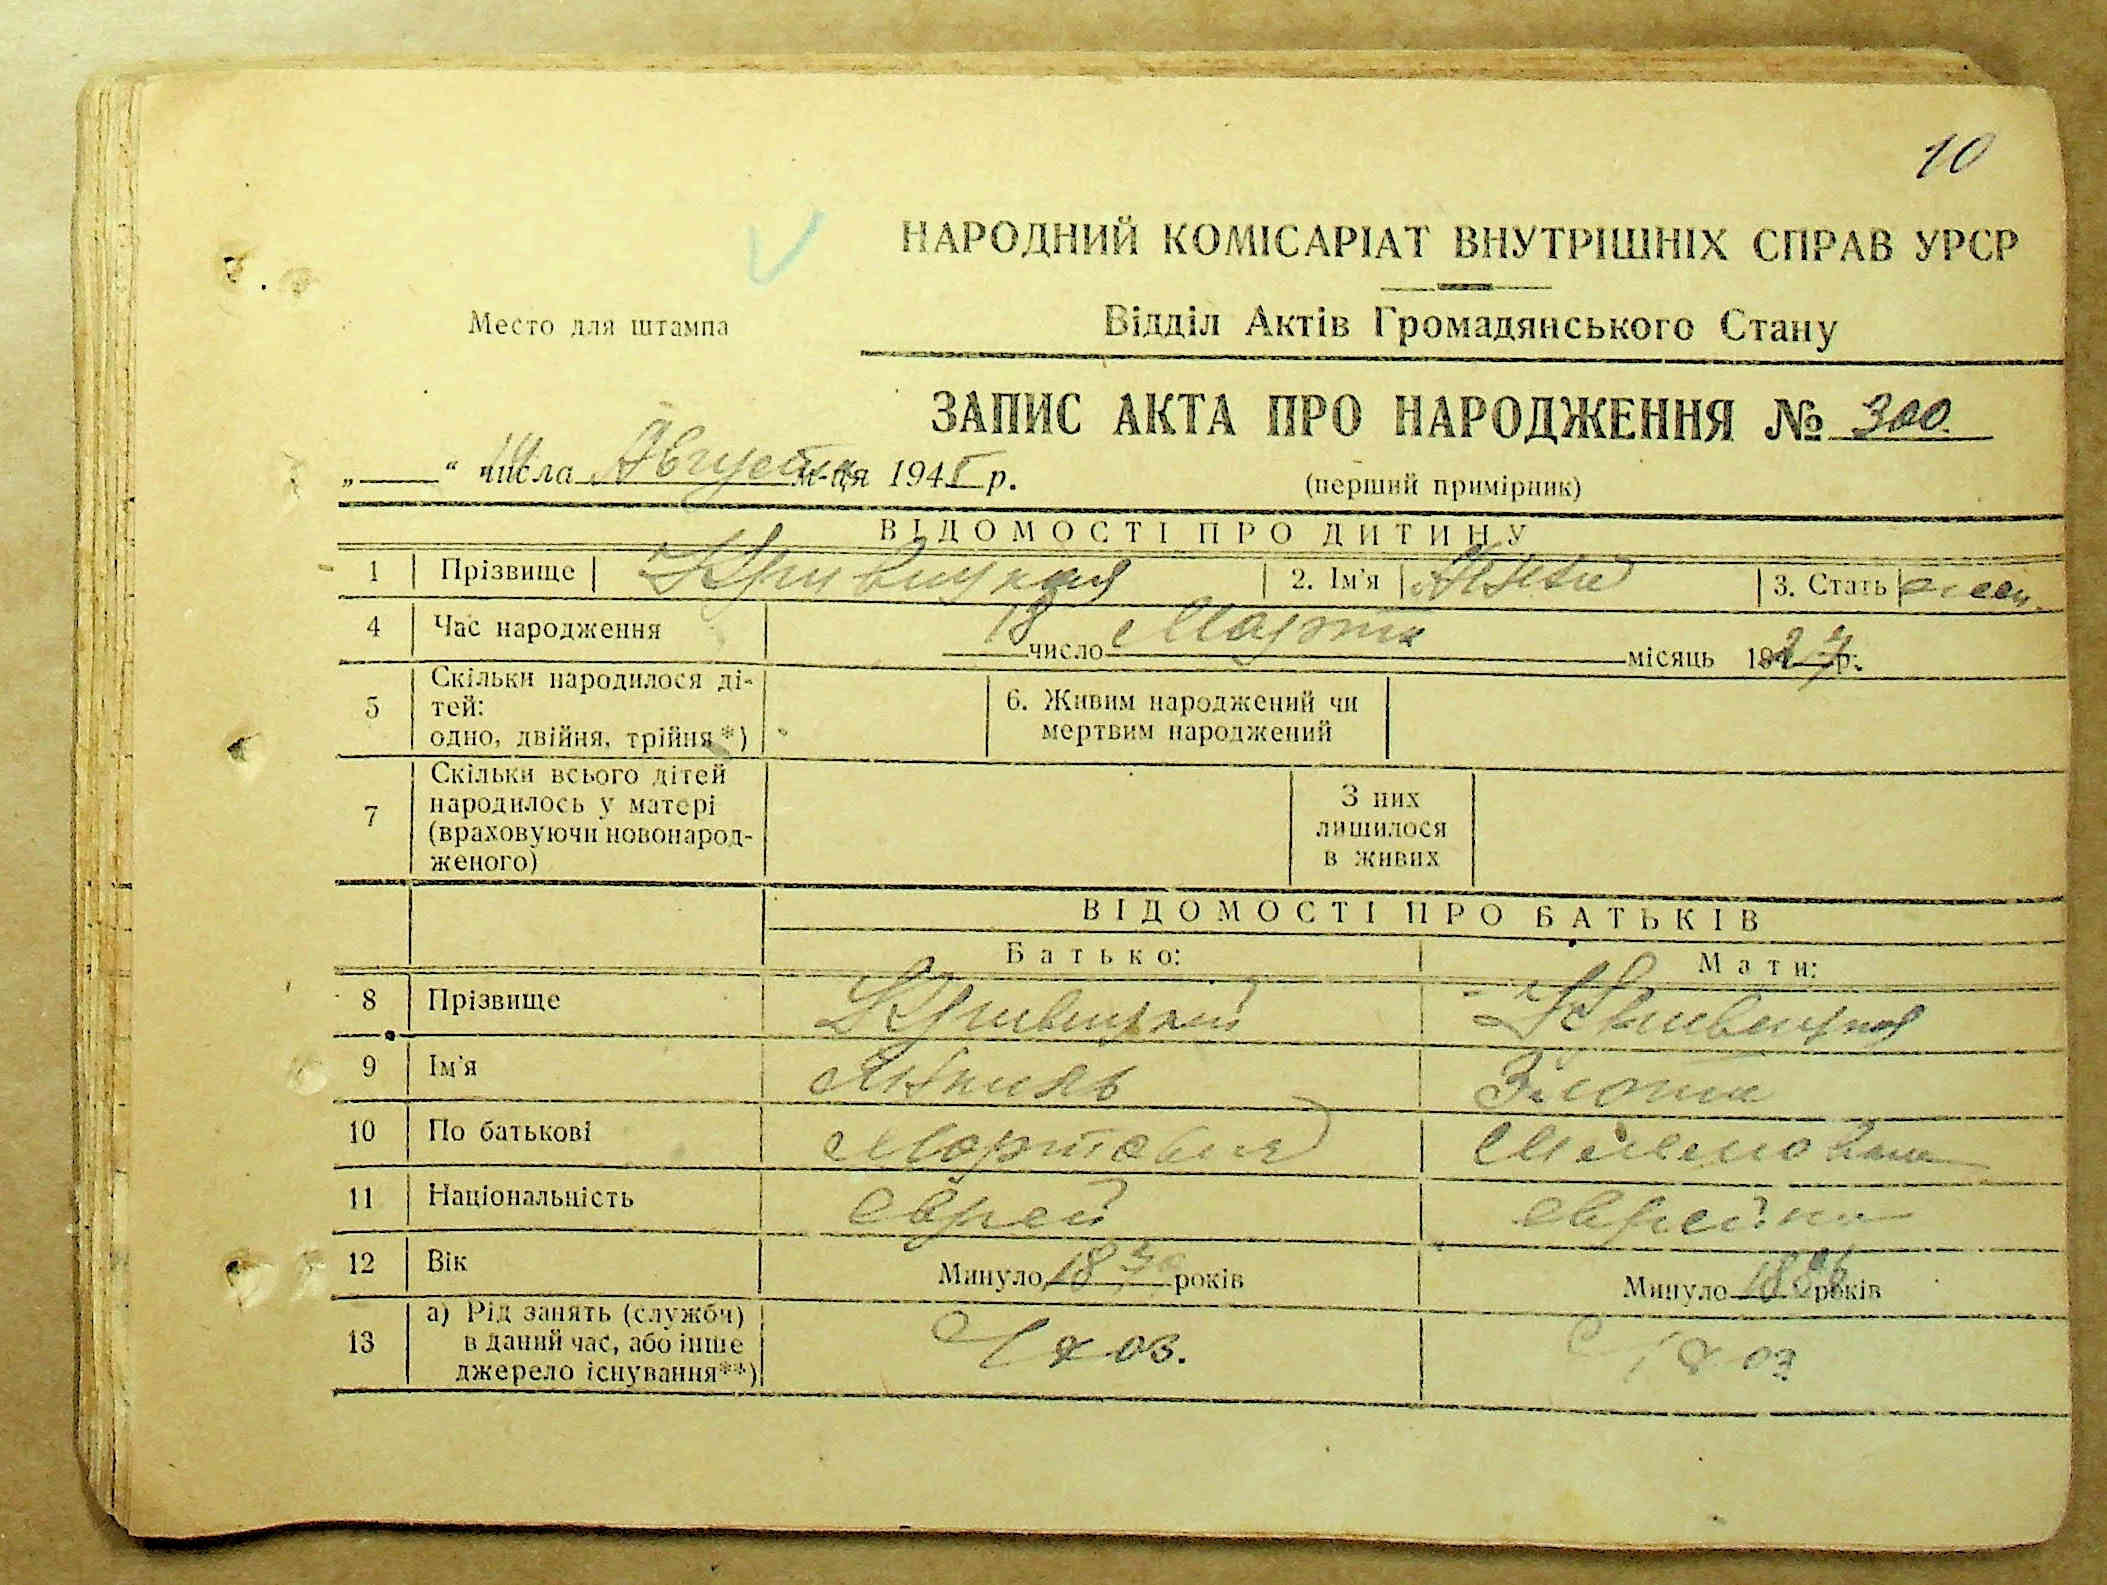 10
НАРОДНИЙ КОМІСАРІАТ ВНУТРІШНІХ СПРАВ УРСР
Место для штампа
Відділ Актів Громадянського Стану
ЗАПИС АКТА ПРО НАРОДЖЕННЯ № 300
„ “ числа Августа м-ця 1945 р.
(перший примірник)
ВІДОМОСТІ ПРО ДИТИНУ
1 Прізвище Кривицкая 2. Ім'я 3. Стать жен.
4 Час народження 18 число Марта місяць 1927 р.
5 Скільки народилося ді-
тей:
одно, двійня, трійня *)
6. Живим народжений чи
мертвим народжений
7 Скільки всього дітей
народилось у матері
(враховуючи новонарод-
женого)
З них
лишилося
в живих
ВІДОМОСТІ ПРО БАТЬКІВ
Батько: Мати:
8 Прізвище Кривицкий Кривицкая
9 Ім'я Злота
10 По батькові
11 Національність еврей еврейка
12 Вік Минуло років Минуло років
13 а) Рід занять (служби)
в даний час, або інше
джерело існування**)